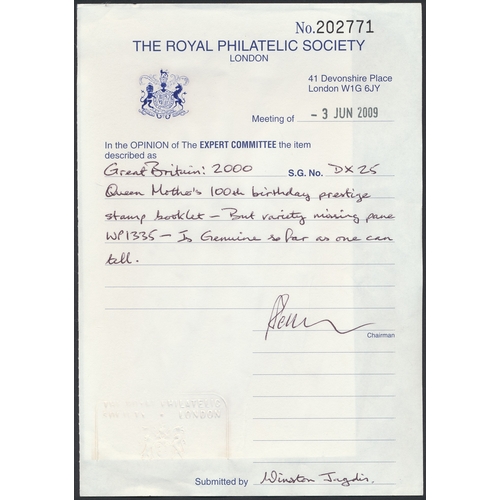 No. 202771
THE ROYAL PHILATELIC SOCIETY
LONDON
41 Devonshire Place
London W1G 6JY
Meeting of - 3 JUN 2009
In the OPINION of The EXPERT COMMITTEE the item
described as
Great Britain: 2000 S.G. No. DX25
Queen Mother's 100th birthday prestige
stamp booklet - But variety missing pane
WP1335 - Is Genuine so far as one can
tell.
Chairman
LONDON
Submitted by Winston